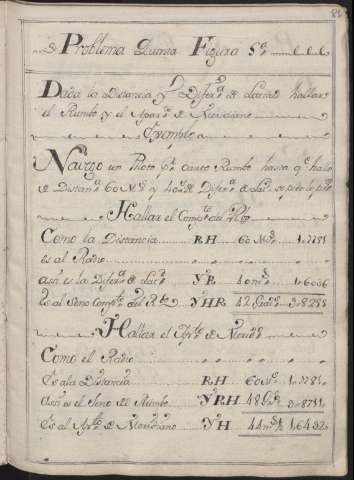 Problema Quinta Figura 5ª
Dada la Distancia y Diferª de Latud hallar
el Rumbo y el Apartº de Meridiano
Exemplo
Navego un Piloto pr cierto Rumbo hasta qe hallo
de Distanª 60 Ms y 40 ms de Diferª de Latd
Hallar el Compto del Rbo
Como la Distancia RH 60 Ms 1,7781
es al Radio
asi es la Diferª de Latd YR 40 ms 1,6036
Es al Seno Compto del Rbo YHR 42 Grads 9,8255
Hallar el Aprto de Meridº
Como el Radio
Es a la Distancia RH 60 Ms 1,7781
asi es el Seno del Rumbo YRH 48 Gs 9,8711
Es al Aprto de Meridiano YH 44 ms 1,6492